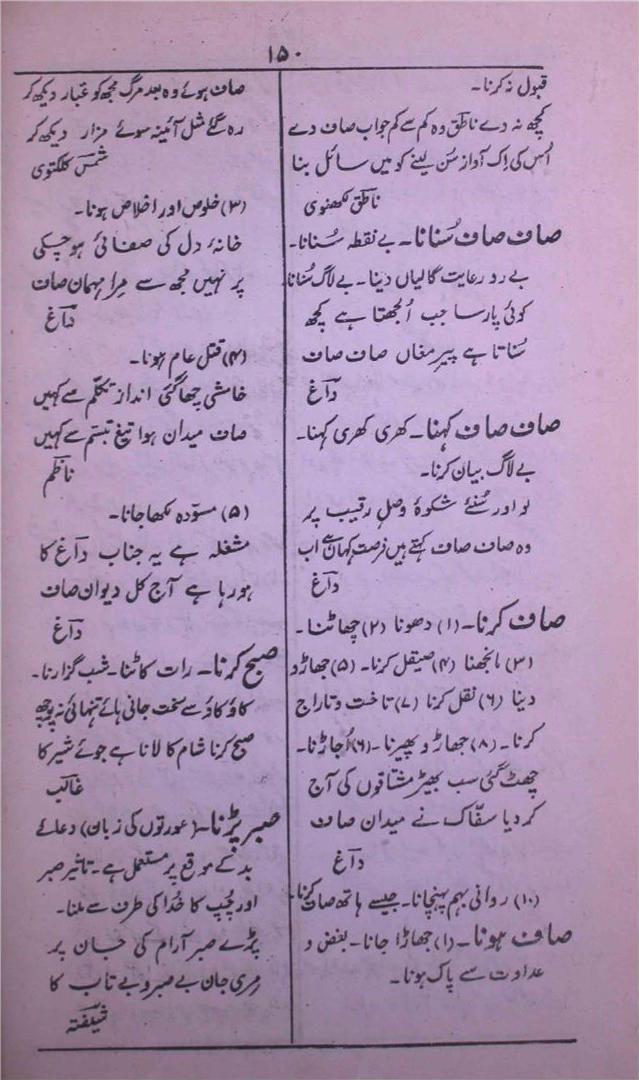 ۱۵۰
قبول نہ کرنا۔
کچھ نہ دے ناطق وہ کم سے کم جواب صاف دے
اُس کی اِک آواز سُن لینے کو میں سائل بنا
ناطق لکھنوی
صاف صاف سُنانا۔ بے نقطہ سُنانا۔
بے رو رعایت گالیاں دینا۔ بے لاگ سُنانا
کوئی پارسا جب اُلجھتا ہے کچھ
سُناتا ہے پیرِ مغاں صاف صاف
داغ
صاف صاف کہنا۔ کھری کھری کہنا۔
بے لاگ بیان کرنا۔
لو اور سُنئے شکوۂ وصلِ رقیب پر
وہ صاف صاف کہتے ہیں فرصت کہاں ہے اب
داغ
صاف کرنا۔ (۱) دھونا (۲) چھاٹنا۔
(۳) مانجھنا (۴) صیقل کرنا۔ (۵) جھاڑو
دینا (۶) نقل کرنا (۷) تاخت و تاراج
کرنا۔ (۸) جھاڑو پھیرنا۔ (۶) اُجاڑنا۔
چھٹ گئی سب بھیڑ مشتاقوں کی آج
کر دیا سفّاک نے میدان صاف
داغ
(۱۰) روانی بہم پہنچانا۔ جیسے ہاتھ صاف کرنا۔
صاف ہونا۔ (۱) جھاڑا جانا۔ بغض و
عداوت سے پاک ہونا۔
صاف ہوئے وہ بعد مرگ مجھ کو غبار دیکھ کر
رہ گئے مثل آئینہ سوئے مزار دیکھ کر
شمس کلکتوی
(۳) خلوص اور اخلاص ہونا۔
خانۂ دل کی صفائی ہو چکی
پر نہیں مجھ سے مِرا مہمان صاف
داغ
(۴) قتل عام ہونا۔
خامشی چھا گئی اندازِ تکلّم سے کہیں
صاف میدان ہوا تیغِ تبسّم سے کہیں
ناظم
(۵) مسوّدہ لکھا جانا۔
مشغلہ ہے یہ جناب داغ کا
ہو رہا ہے آج کل دیوان صاف
داغ
صبح کرنا۔ رات کاٹنا۔ شب گزارنا۔
کاؤ کاؤِ سخت جانی ہائے تنہائی نہ پوچھ
صبح کرنا شام کا لانا ہے جوئے شیر کا
غالب
صبر پڑنا۔ (عورتوں کی زبان) دعائے
بد کے موقع پر مستعمل ہے۔ تاثیر صبر
اور چُپ کا خُدا کی طرف سے ملنا۔
پڑے صبر آرام کی جان پر
مِری جان بے صبر و بے تاب کا
شیفتہ